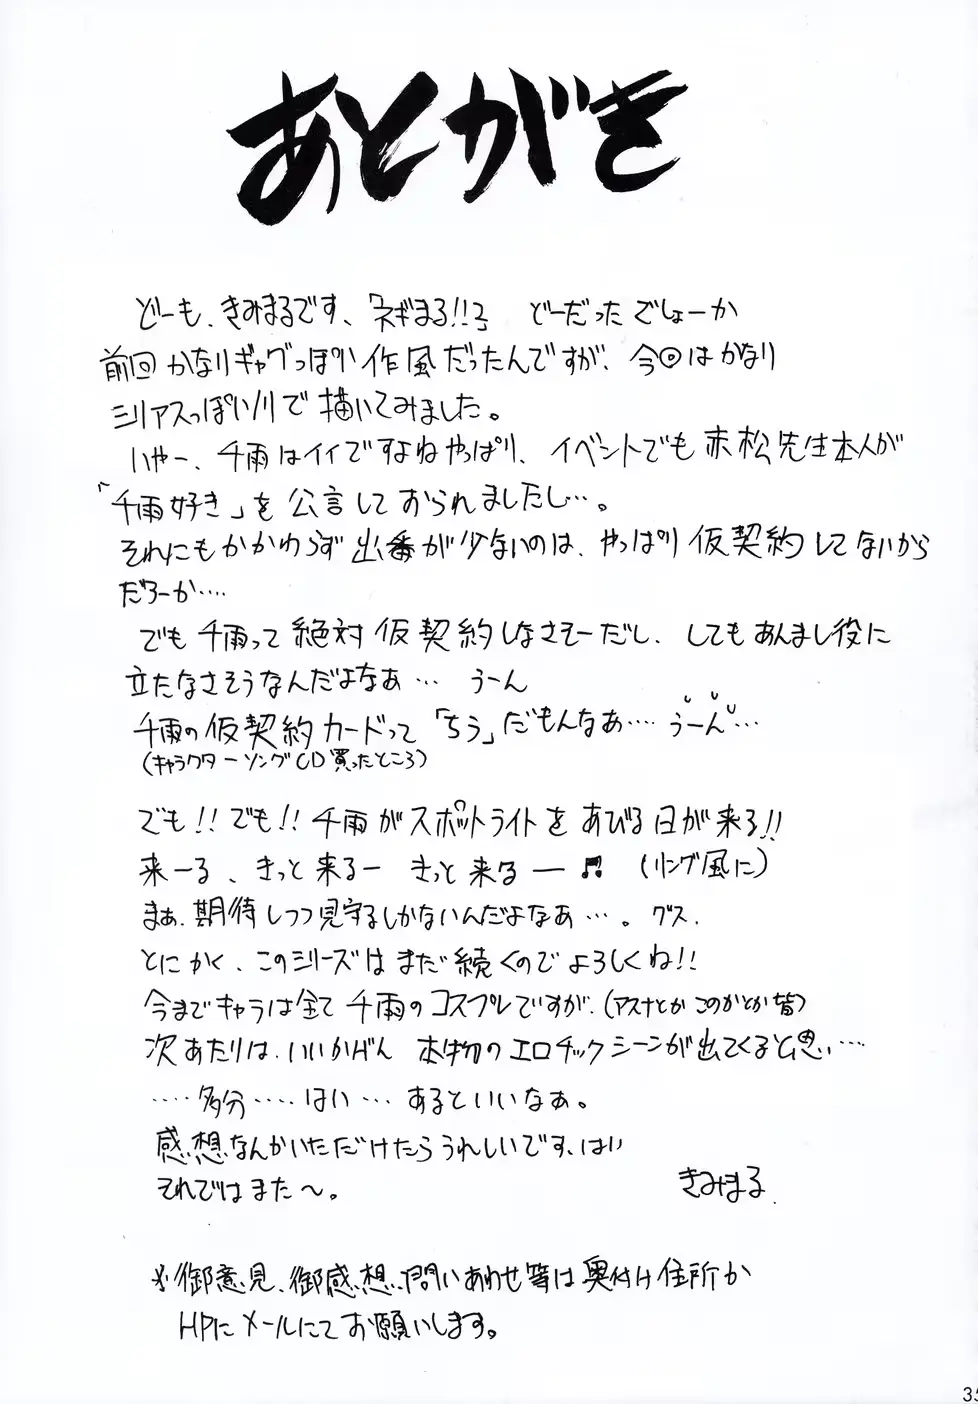 あとがき
どーも、きみまるです、「ネギまる!!2」 どーだったでしょーか
前回かなりギャグっぽい作風だったんですが、今回はかなり
シリアスっぽいノリで描いてみました。
いやー、千雨はイイですよねやっぱり、イベントでも赤松先生本人が
「千雨好き」を公言しておられましたし…。
それにもかかわらず出番が少ないのは、やっぱり仮契約してないから
だろーか….
でも千雨って絶対仮契約しなさそーだし、してもあんまし役に
立たなさそうなんだよなあ… うーん
千雨の仮契約カードって「ちう」だもんなあ…. うーん…
(キャラクターソングCD買ったところ)
でも!!でも!!千雨がスポットライトをあびる日が来る!!
来ーる、きっと来るー きっと来るー♬ (リング風に)
まぁ、期待しつつ見守るしかないんだよなあ…。グス.
とにかく、このシリーズはまだ続くのでよろしくね!!
今までキャラは全て千雨のコスプレですが、(アスナとかこのかとか皆)
次あたりは、いいかげん 本物のエロチックシーンが出てくると思い…
…..多分…..はい…あるといいなぁ。
感想なんかいただけたらうれしいです、はい
それではまた〜。
きみまる
※御意見、御感想、問いあわせ等は奥付け住所か
HPにメールにてお願いします。
35